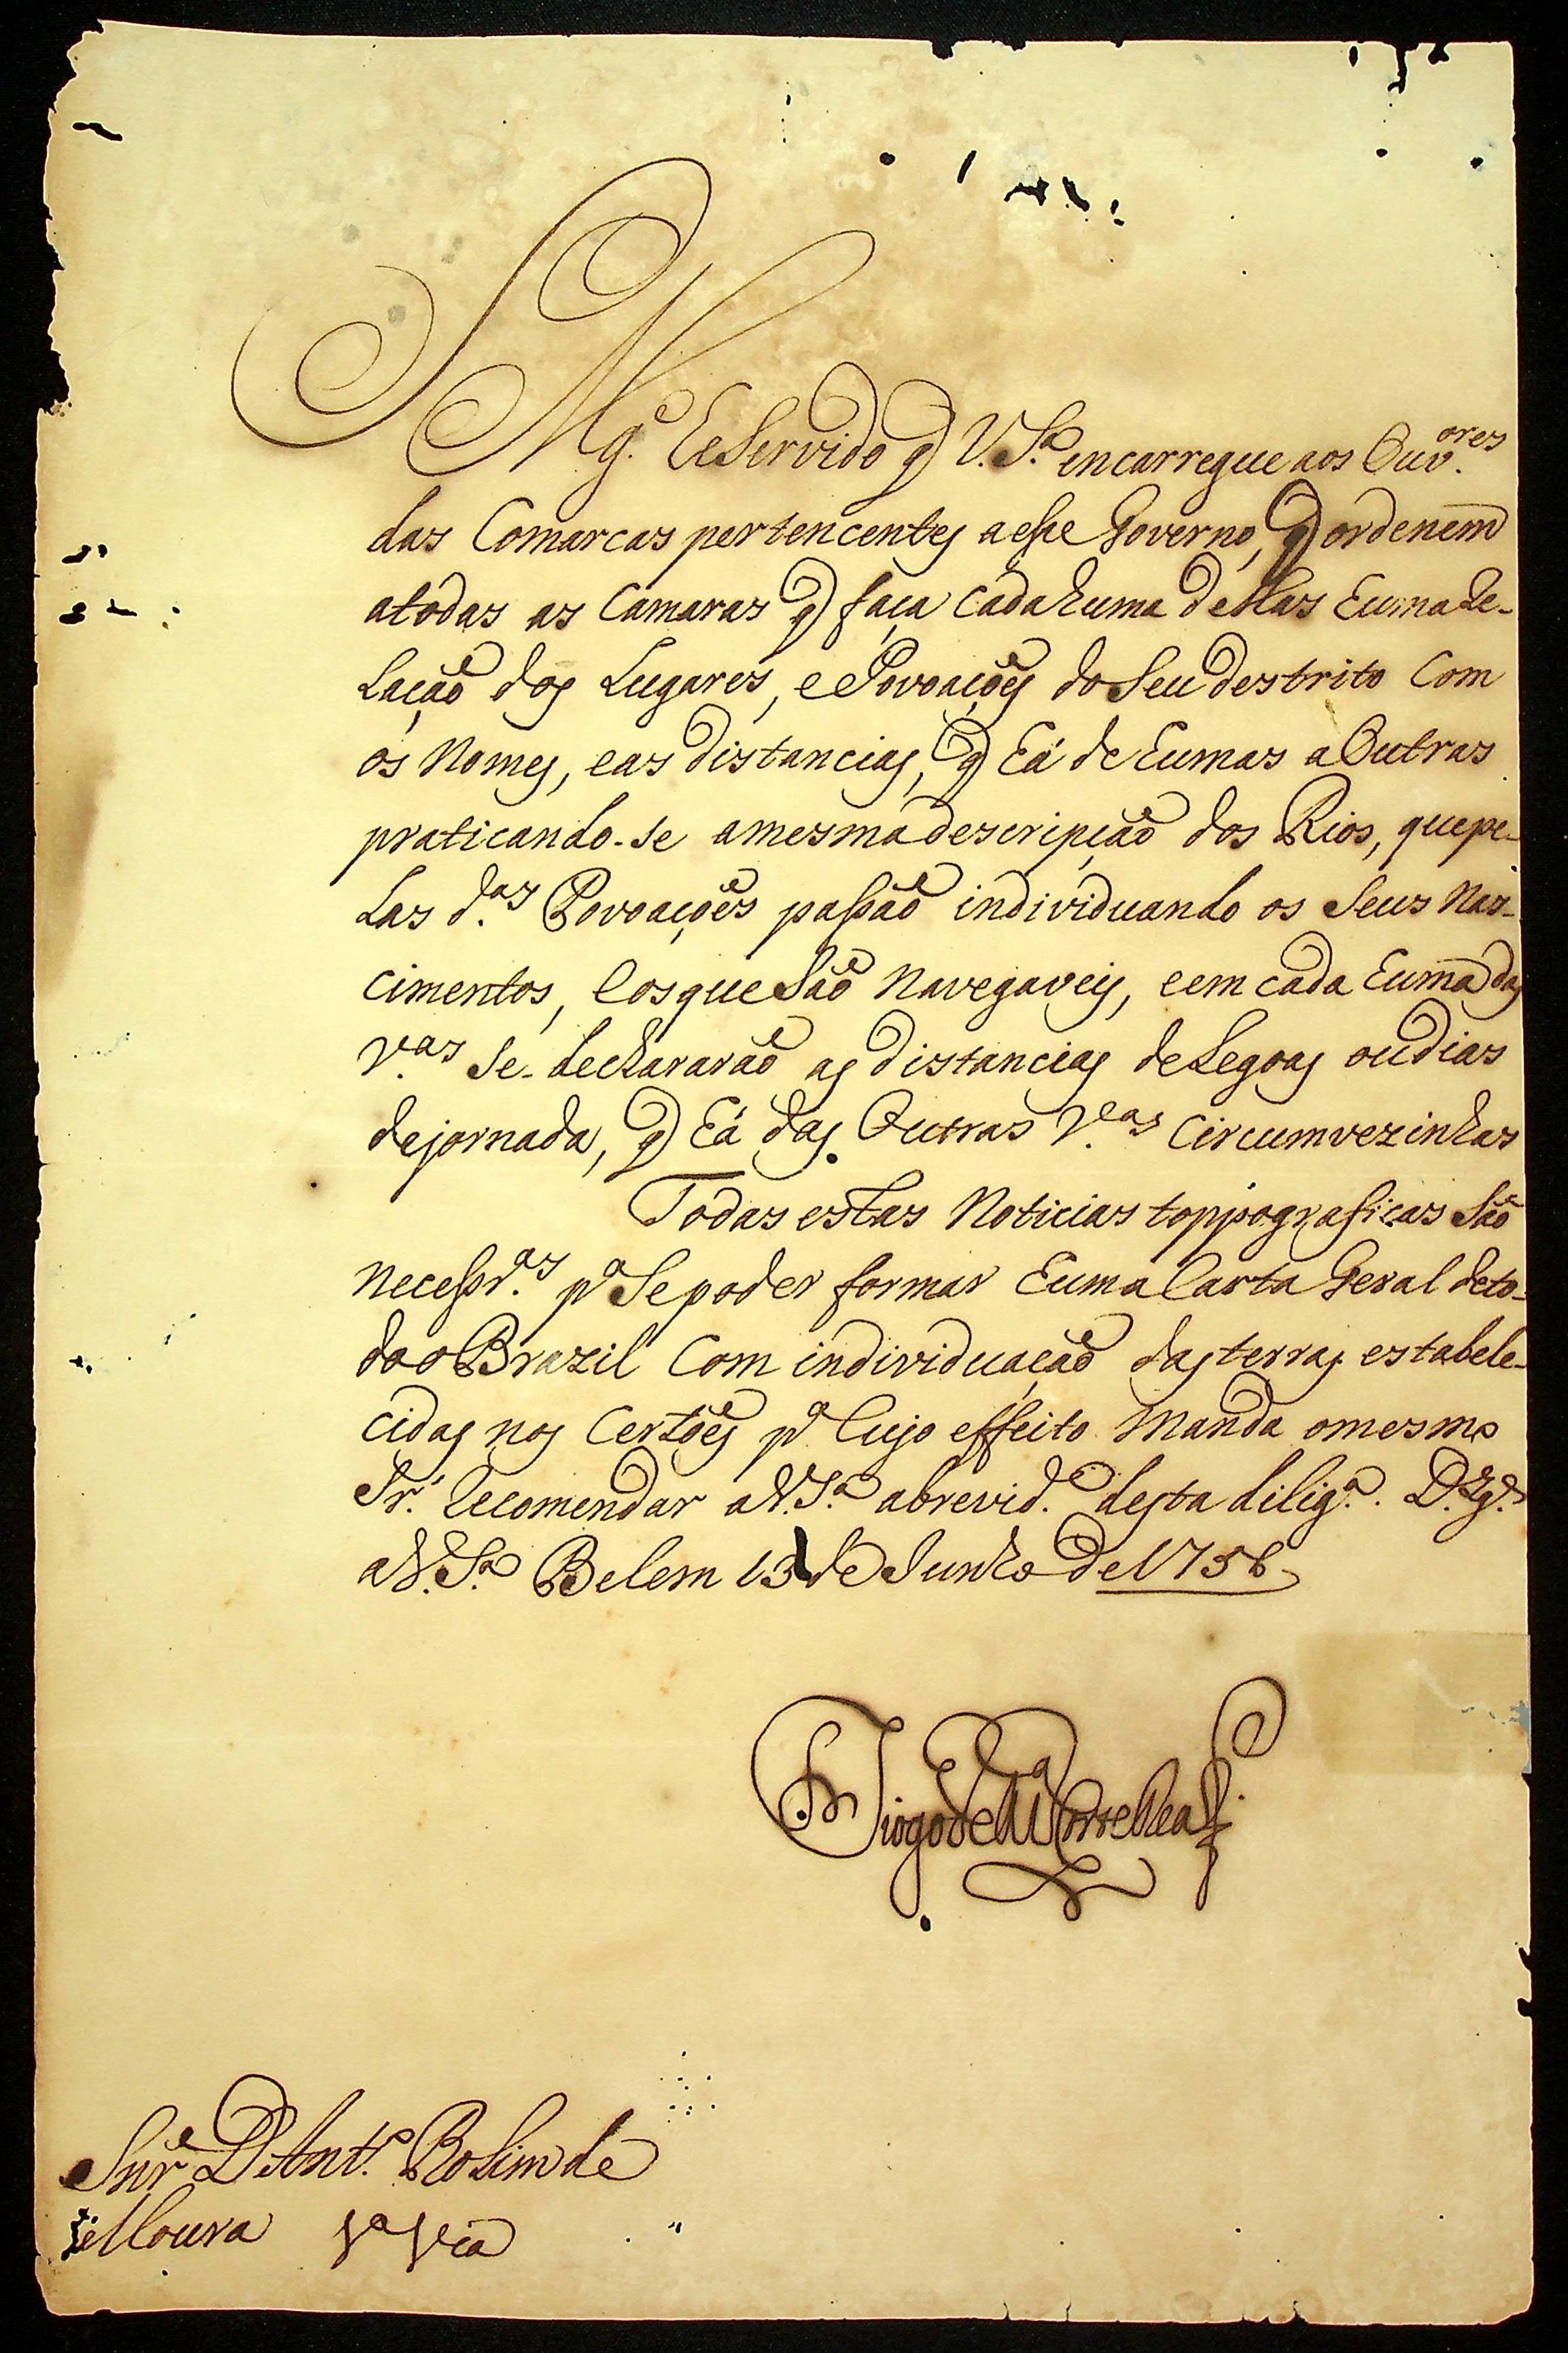 S Mg.e he servido q̃ V. S.a encarregue aos Ouv.ores
das Comarcas pertencentes a esse Governo, q̃ ordenem
a todas as Camaras q̃ faça cada huma dellas huma Re-
lação dos Lugares, e Povoações do seu destrito Com
os Nomes, e as distancias, q̃ há de humas a Outras
praticando-se a mesma descripção dos Rios, que pe-
las d.as Povoações passão individuando os seus Nas-
cimentos, e os que são Navegaveis, e em cada huma das
V.as se declararão as distancias de Legoas ou dias
de jornada, q̃ há das Outras V.as Circumvezinhas
Todas estas Noticias toppograficas são
necessr.as p.a se poder formar huma Carta Geral de to-
do o Brazil Com individuação das terras estabele-
cidas nos Certões p.a Cujo effeito Manda o mesmo
Sr. Recomendar a V. S.a a brevid.e desta dilig.a. D.s g.e
a V. S.a Belem 13 de Junho de 1756
Diogo de M.ça Corte Real
Snr. D. Ant.o Rolim de
Moura 1.a via